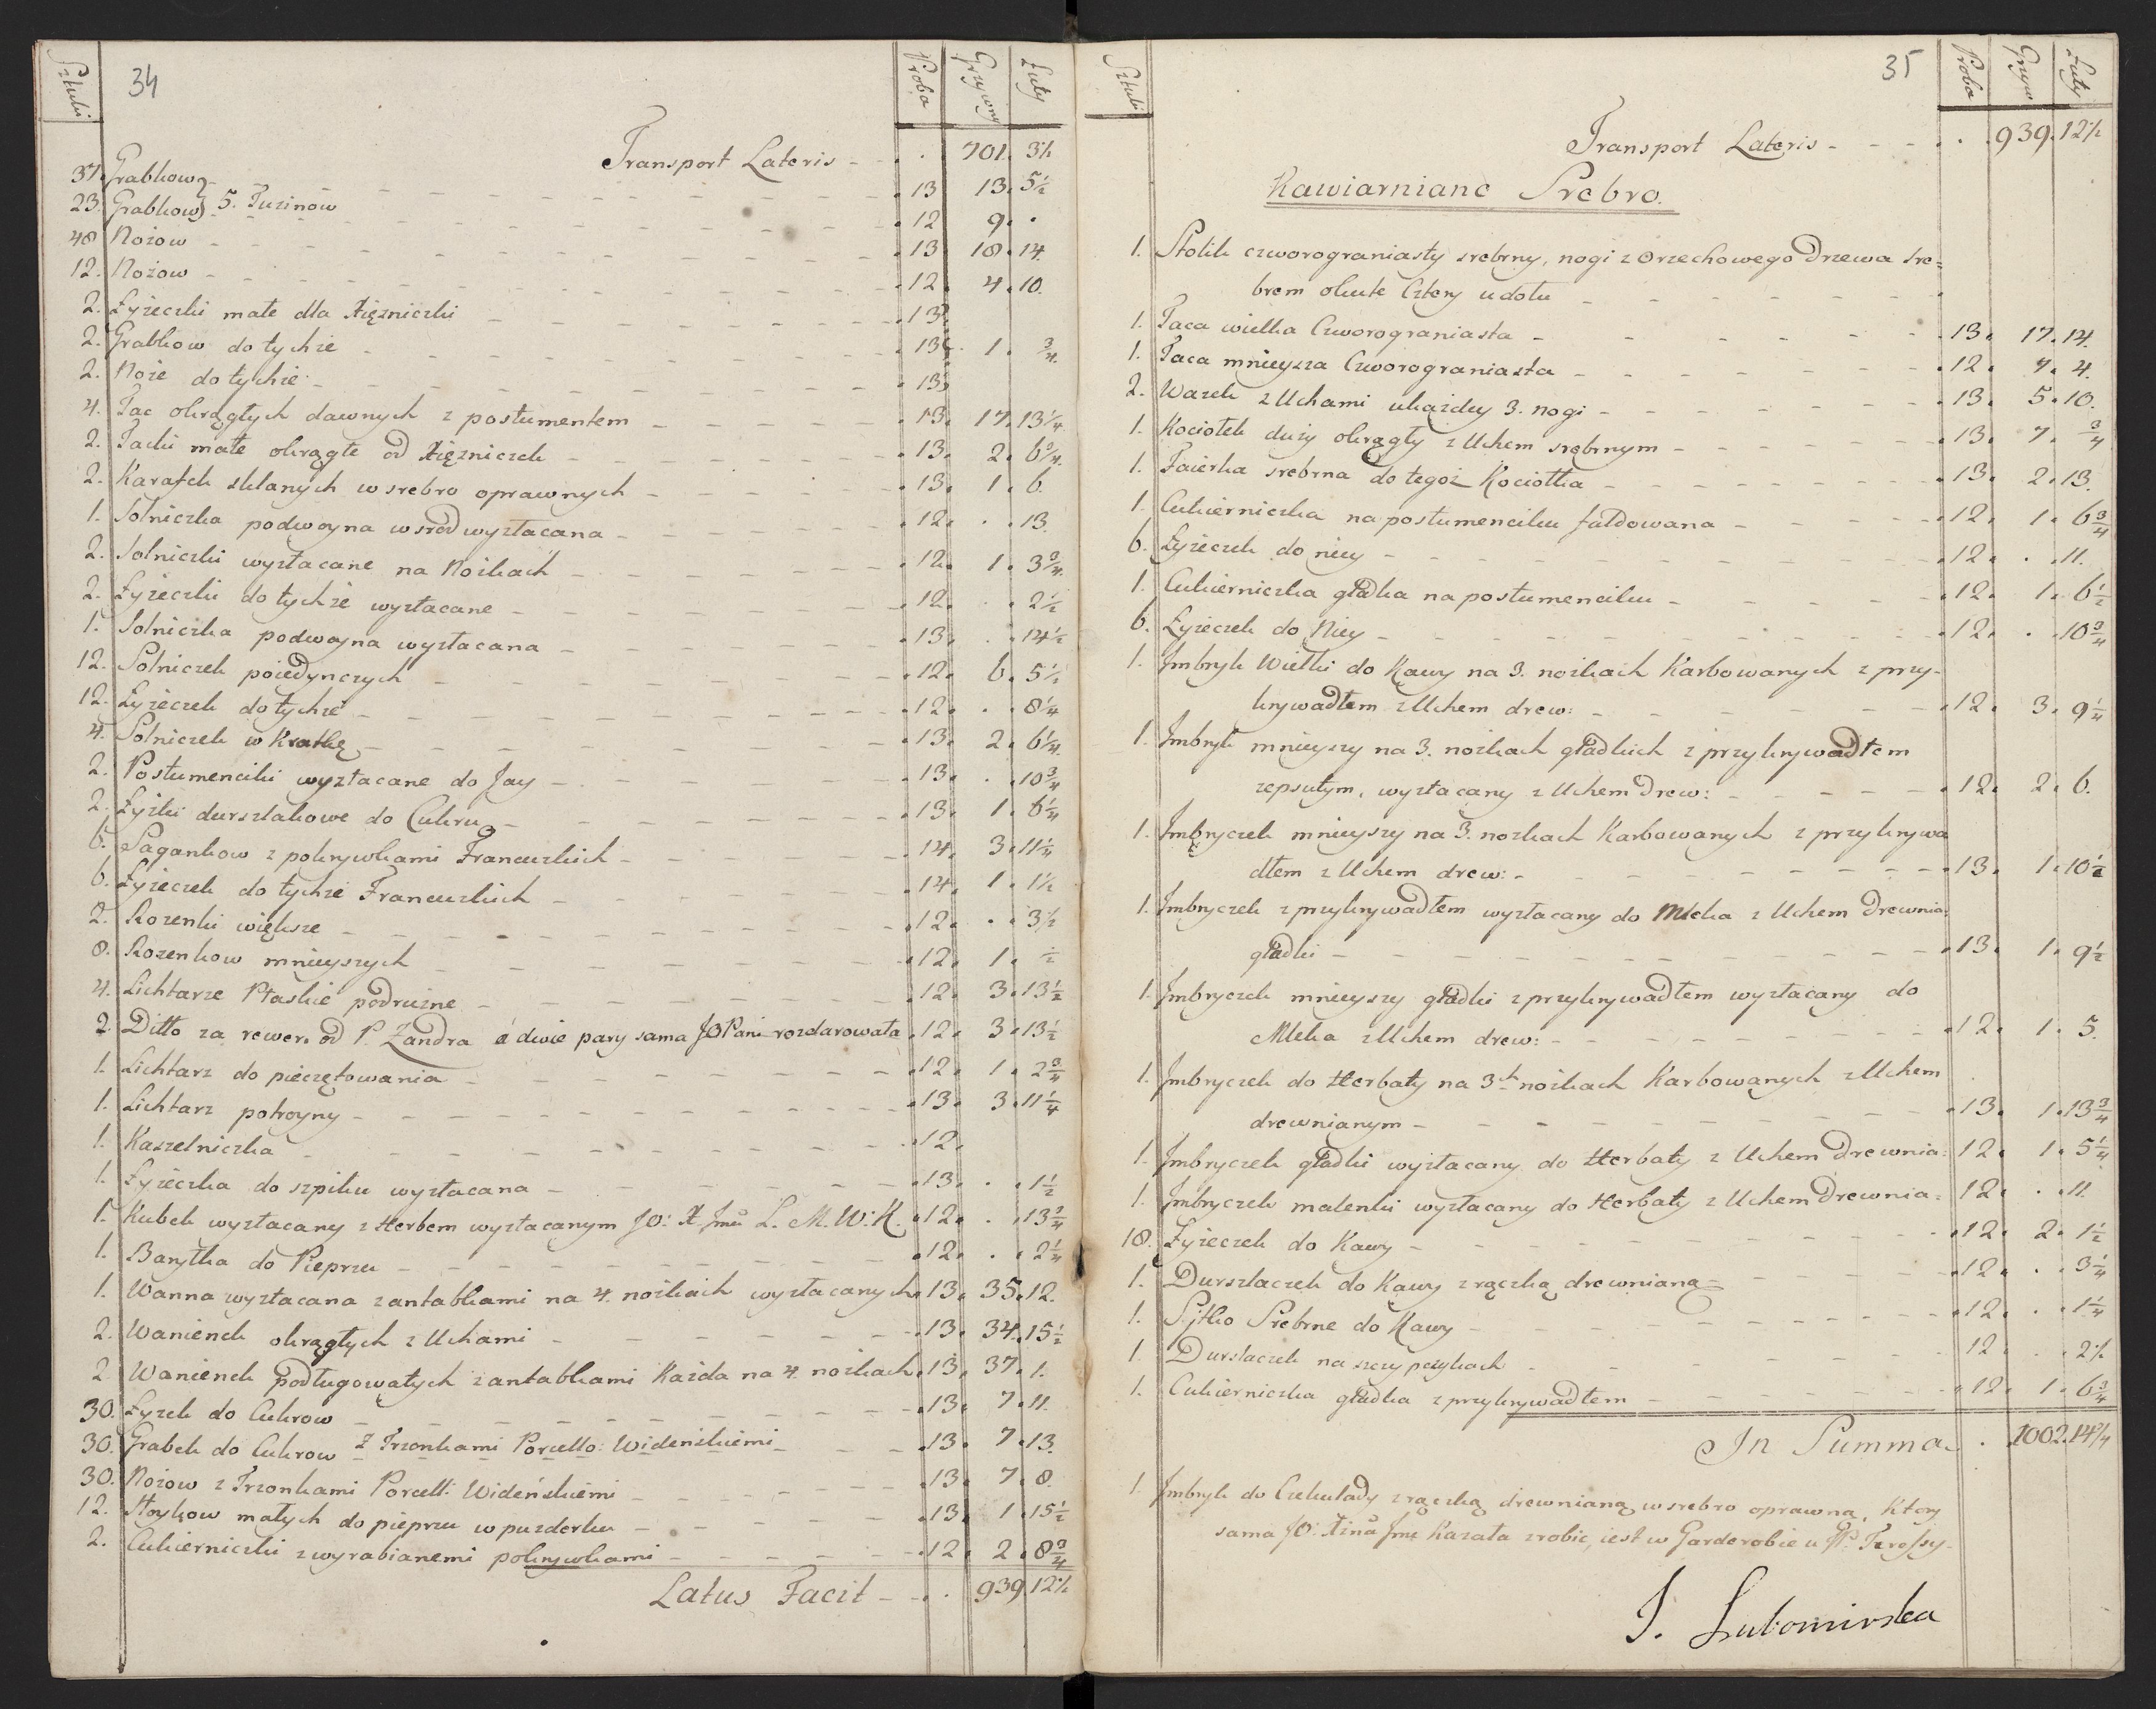 34
Sztuki Proba Grzywny Łuty
Transport Lateris - - . 701. 3½
37. Grabkow - 13 13. 5½
5. Tuzinow
23. Grabkow - 12 9. .
48 Nożow - 13 18. 14.
12. Nożow - 12 4. 10.
2. Łyżeczki małe dla Xiężniczki - 13
2. Grabkow do tychże - 13 1. ¾
2. Noże do tychże - 13
4. Tac okrągłych dawnych z postumentem - 13. 17. 13¼
2. Tacki małe okrągłe od Xiężniczek - 13. 2. 6¾
2. Karafek sklanych w srebro oprawnych - 13. 1. 6.
1. Solniczka podwoyna wsrod wyzłacana - 12. . 13.
2. Solniczki wyzłacane na Nożkach - 12. 1. 3¾
2. Łyżeczki do tychże wyzłacane - 12. . 2½
1. Solniczka podwoyna wyzłacana - 13. . 14½
12. Solniczek poiedynczych - 12. 6. 5½
12. Łyżeczek do tychże - 12. . 8¼
4. Solniczek w Kratkę - 13. 2. 6¼
2. Postumenciki wyzłacane do Jay - 13. . 10¾
2. Łyżki durszlakowe do Cukru - 13. 1. 6¼
6. Sagankow z pokrywkami Francuzkich - 14. 3. 11¼
6. Łyżeczek do tychże Francuzkich - 14. 1. 1½
2. Rozenki większe - 12. . 3½
8. Rozenkow mnieyszych - 12. 1. ½
4. Lichtarze Płaskie podrużne - 12. 3. 13½
2. Ditto za rewer. od P. Zandra a dwie pary sama JO Pani rozdarowała 12. 3. 13½
1. Lichtarz do pieczętowania - 12. 1. 2¾
1. Lichtarz potroyny - 13. 3. 11¼
1. Kaszelniczka - 12.
1. Łyżeczka do szpiku wyzłacana - 13. . 1½
1. Kubek wyzłacany z Herbem wyzłacanym JO: X Jmci L. M. W: K. 12. . 13¾
1. Baryłka do Pieprzu - 12. . 2¼
1. Wanna wyzłacana z antabkami na 4. nożkach wyzłacanych 13. 35. 12.
2. Wanienek okrągłych z Uchami - 13. 34. 15½
2. Wanienek podługowatych z antabkami Każda na 4. nożkach. 13. 37. 1.
30. Łyżek do Cukrow - 13. 7. 11.
30. Grabek do Cukrow z Trzonkami Porcello: Wideńskiemi - 13. 7. 13.
30. Nożow z Trzonkami Porcell: Wideńskiemi - 13. 7. 8.
12. Strykow małych do pieprzu w puzderku - 13. 1. 15½
2. Cukierniczki z wyrabianemi pokrywkami - 12. 2. 8¾
Latus Facit - . 939. 12½
35
Sztuki Proba Grzyw Łuty
Transport Lateris - - - . 939. 12½
Kawiarniane Srebro.
1. Stolik czworograniasty srebrny, nogi z Orzechowego Drzewa sre=
brem okute Cztery u dołu -
1. Taca wielka Czworograniasta - 13. 17. 14.
1. Taca mnieysza Czworograniasta - 12. 7. 4.
2. Wazek z Uchami u każdey 3. nogi - 13. 5. 10.
1. Kociołek duży okrągły z Uchem srebrnym - 13. 7. ¾
1. Faierka srebrna do tegoż Kociołka - 13. 2. 13.
1. Cukierniczka na postumenciku fałdowana - 12. 1. 6¾
6. Łyżeczek do niey - 12. . 11.
1. Cukierniczka gładka na postumenciku - 12. 1. 6½
6. Łyżeczek do Niey - 12. . 10¾
1. Jmbryk Wielki do Kawy na 3. nożkach Karbowanych z przy-
krywadłem z Uchem drew: - 12. 3. 9¼
1. Jmbryk mnieyszy na 3. nożkach gładkich z przykrywadłem
zepsutym, wyzłacany z Uchem Drew: - 12. 2. 6.
1. Jmbryczek mnieyszy na 3. nożkach Karbowanych z przykrywa
dłem z Uchem drew: - 13. 1. 10½
1. Jmbryczek z przykrywadłem wyzłacany do Mleka z Uchem Drewnia:
gładki - 13. 1. 9½
1. Jmbryczek mnieyszy gładki z przykrywadłem wyzłacany do
Mleka z Uchem drew: - 12. 1. 5.
1. Jmbryczek do Herbaty na 3ch nożkach Karbowanych z Uchem
drewnianym - 13. 1. 13¾
1. Jmbryczek gładki wyzłacany do Herbaty z Uchem Drewnia: 12. 1. 5¼
1. Jmbryczek malenki wyzłacany do Herbaty z Uchem Drewnia: 12. . 11.
18. Łyżeczek do Kawy - 12. 2. 1½
1. Durszlaczek do Kawy z rączką drewnianą - 12. . 3¼
1. Sitko Srebrne do Kawy - 12. . 1¼
1. Durszlaczek na szczypczykach - 12 . 2½
1. Cukierniczka gładka z przykrywadłem - 12. 1. 6¾
In Summa - . 1002. 14¾
1. Jmbryk do Czekulady z rączką drewnianą w srebro oprawną, Ktory
sama JO: Xżna Jmć Kazała zrobic, iest w Garderobie u JP. Teressy -
J. Lubomirska